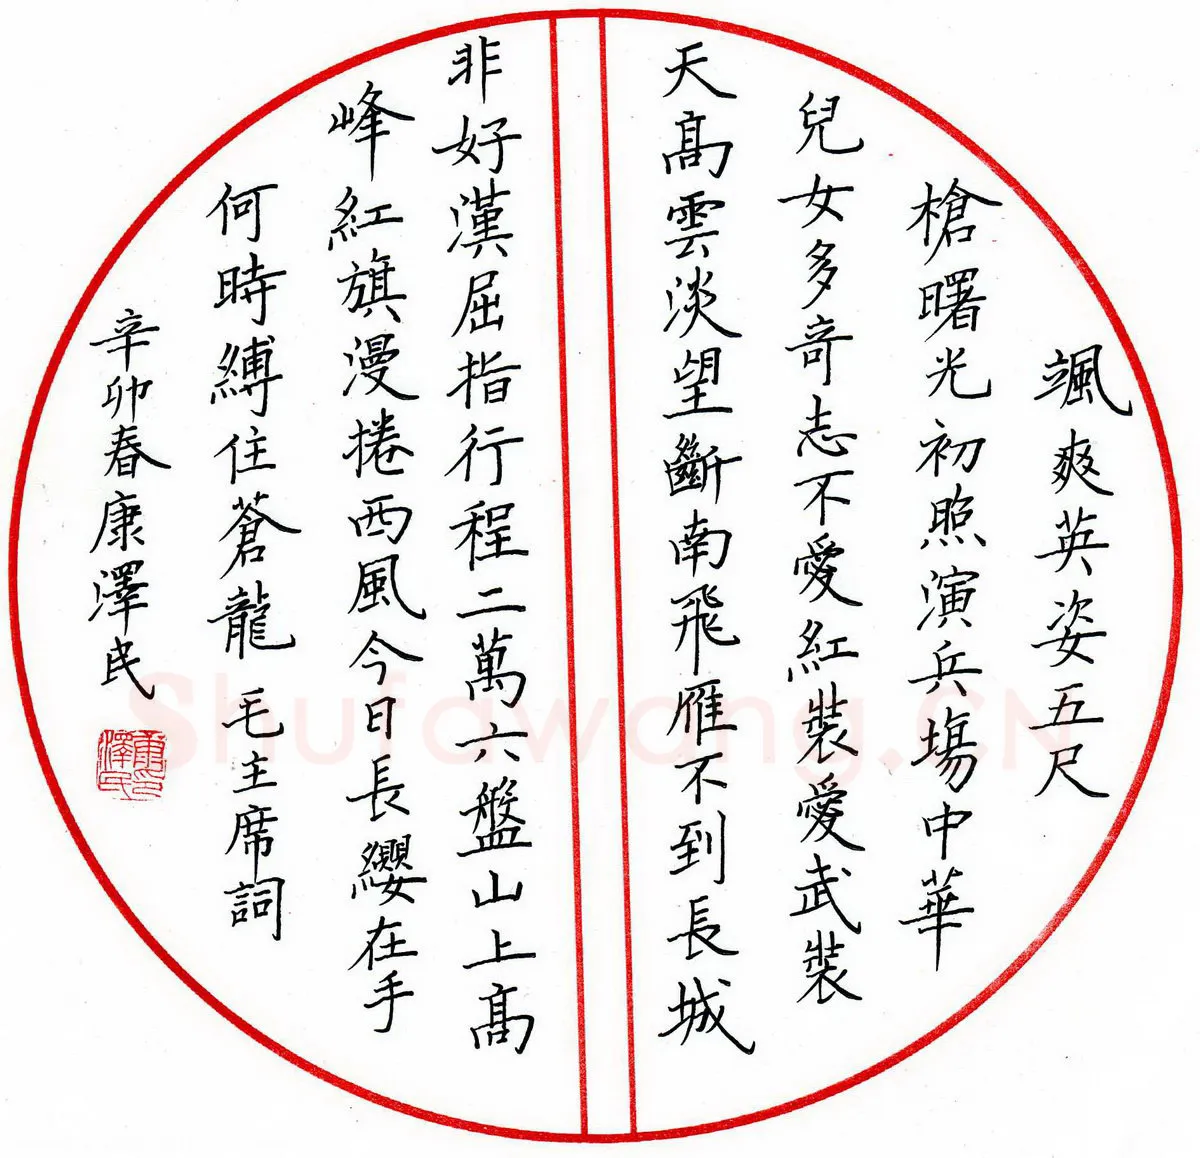 颯爽英姿五尺
槍曙光初照演兵場中華
兒女多奇志不愛紅裝愛武裝
天高雲淡望斷南飛雁不到長城
非好漢屈指行程二萬六盤山上高
峰紅旗漫捲西風今日長纓在手
何時縛住蒼龍 毛主席詞
辛卯春康澤民
康澤民印
Shufawang.CN